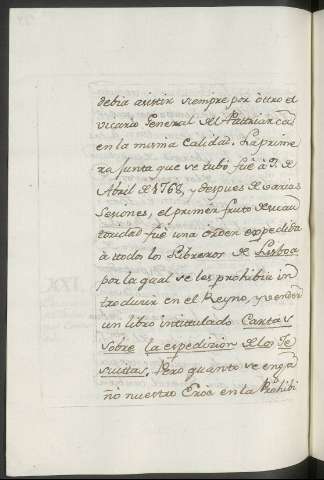 debia asistir siempre por otro el
vicario General del Patriarcad
en la misma Calidad. La prime
ra Junta que se tubo fué à 9. de
Abril de 1768, y despues de varias
Sesiones, el primer fruto de su au
toridad fué una orden expedida
à todos los Libreros de Lisboa
por la qual se les prohibia in
troducir en el Reyno, y vender
un libro intitulado Cartas
sobre la expedizion de los Je
suitas. Pero quanto se enga
ñó nuestro Eroe en la Prohibi